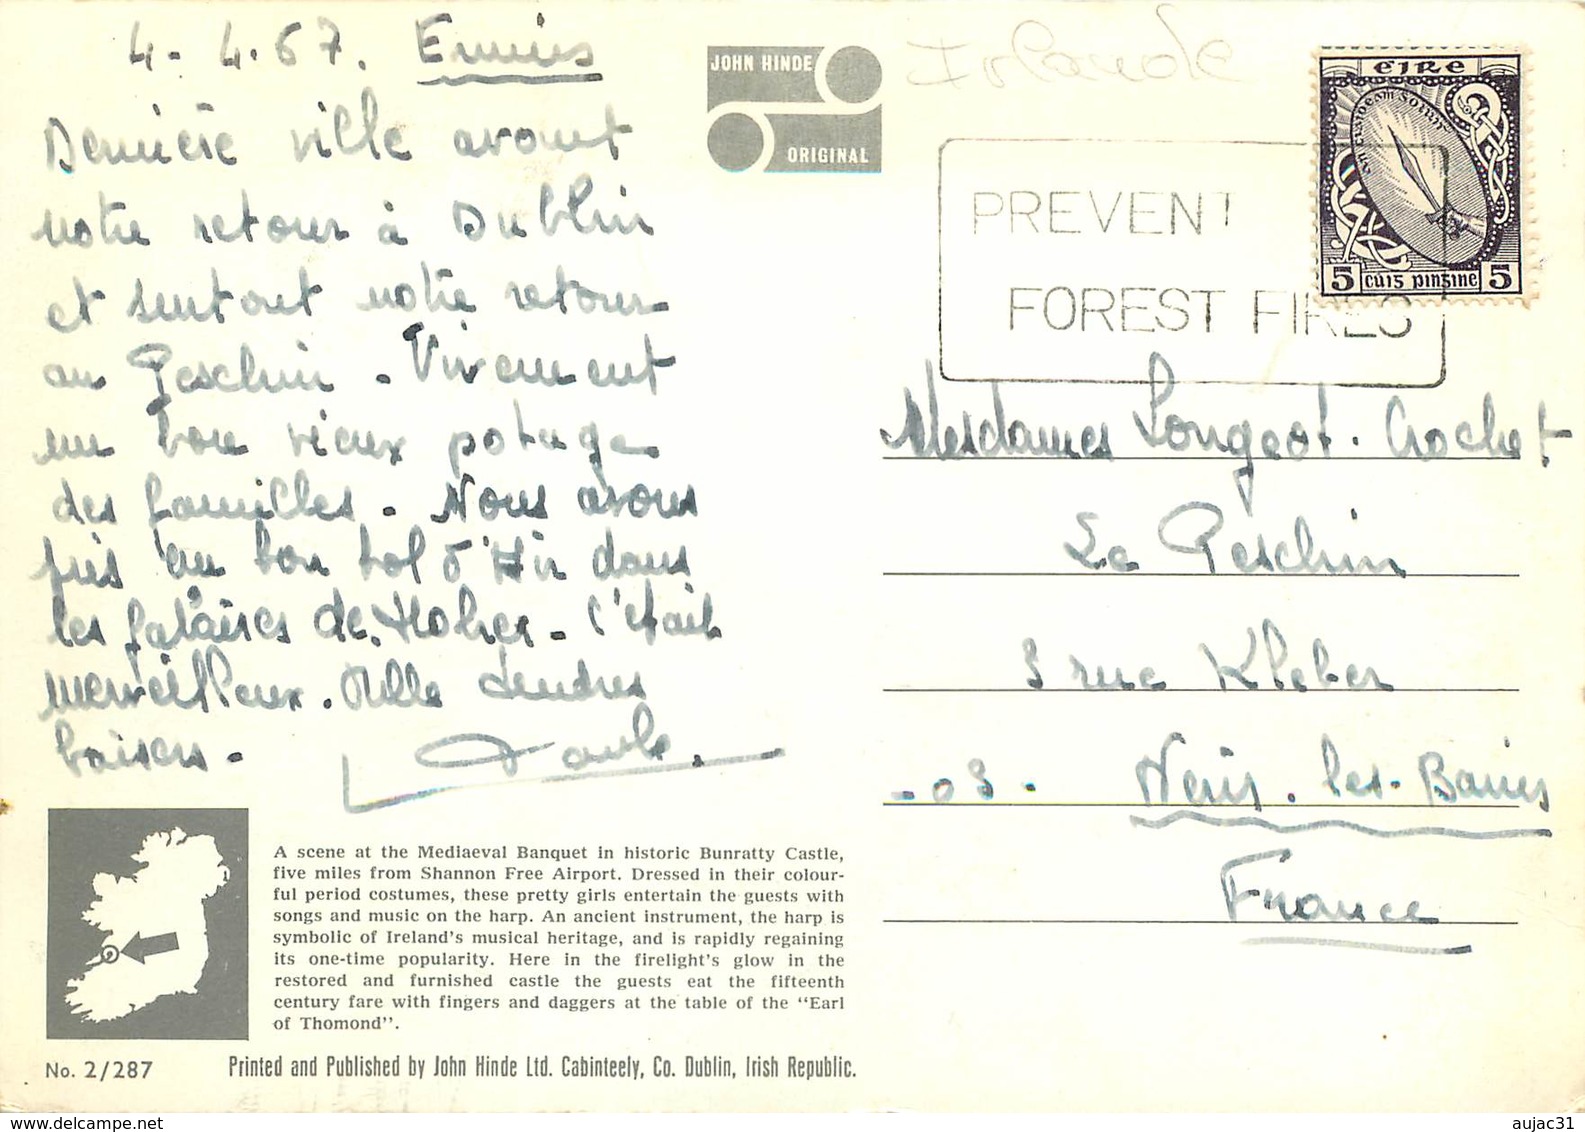 4. 4.67. Ennis
Dernière ville avant
notre retour à Dublin
et surtout notre retour
au Peschin. Vivement
un bon vieux potage
des familles. Nous avons
pris un bon bol d'air dans
les falaises de Moher. C'était
merveilleux. Mille tendres
baisers.
Paule.
JOHN HINDE
ORIGINAL
Irlande
EIRE
5 CUIS PINGINE 5
PREVENT
FOREST FIRES
Mesdames Longeot. Crochet
Le Peschin
3 rue Kleber
03. Neris. les. Bains
France
A scene at the Mediaeval Banquet in historic Bunratty Castle,
five miles from Shannon Free Airport. Dressed in their colour-
ful period costumes, these pretty girls entertain the guests with
songs and music on the harp. An ancient instrument, the harp is
symbolic of Ireland's musical heritage, and is rapidly regaining
its one-time popularity. Here in the firelight's glow in the
restored and furnished castle the guests eat the fifteenth
century fare with fingers and daggers at the table of the "Earl
of Thomond".
No. 2/287
Printed and Published by John Hinde Ltd. Cabinteely, Co. Dublin, Irish Republic.
www.delcampe.net
aujac31